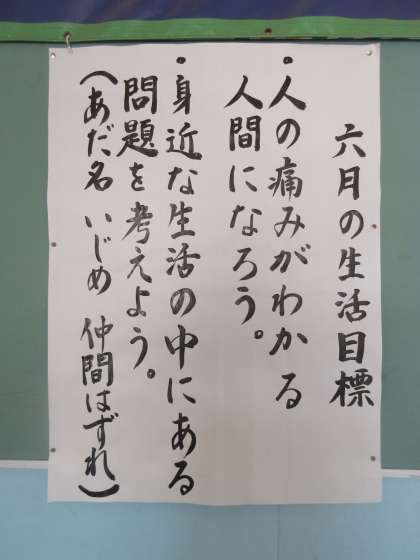 六月の生活目標
・人の痛みがわかる
人間になろう。
・身近な生活の中にある
問題を考えよう。
(あだ名 いじめ 仲間はずれ)